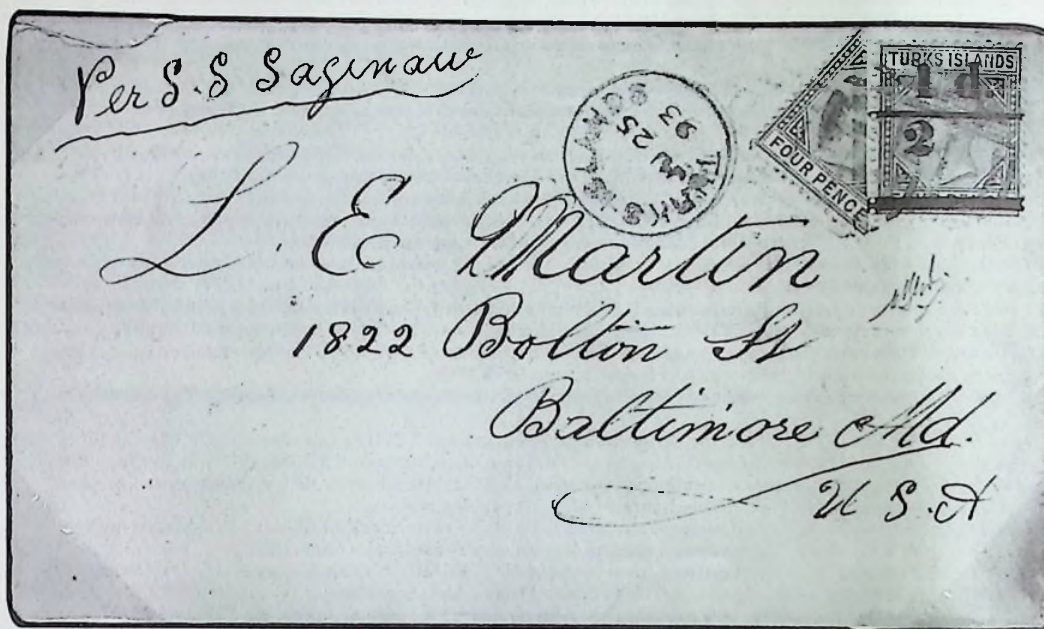 Per S.S Saginaw
TURKS ISLANDS
1d
2
FOUR PENCE
TURKS ISLANDS
25
93
L. E Martin
1822 Bolton St
Baltimore Md.
U S. A